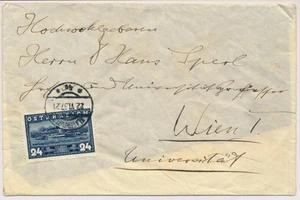 Hochwohlgeboren
Herrn Hans Sperl
Universitätsprofessor
Wien I
Universität
ÖSTERREICH
24 24